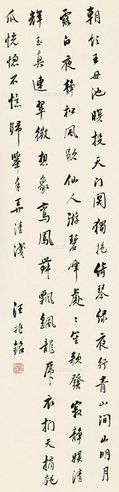 朝飲王母池暝投天門関獨抱綺琴綠夜行青山間山明月
露白夜静松風歇仙人游碧峰處處笙歌發寂静娱清
輝玉真連翠微想象鸞鳳舞飄颻龍虎衣捫天摘匏
瓜恍惚不憶歸舉手弄清淺
汪兆銘